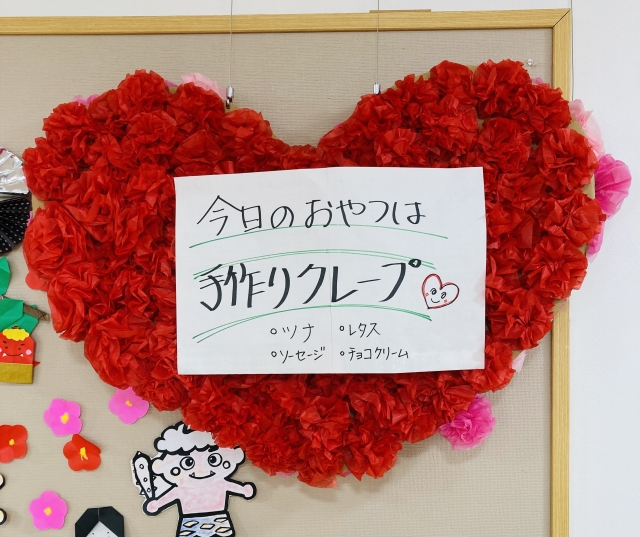 今日のおやつは
手作りクレープ
○ツナ ○レタス
○ソーセージ ○チョコクリーム